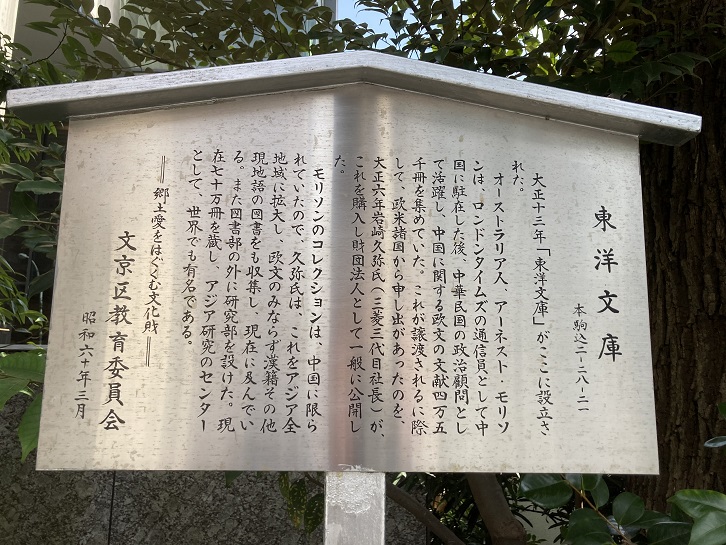 東洋文庫
本駒込二-二八-二一
大正十三年「東洋文庫」がここに設立さ
れた。
オーストラリア人、アーネスト・モリソ
ンは、ロンドンタイムズの通信員として中
国に駐在した後、中華民国の政治顧問とし
て活躍し、中国に関する欧文の文献四万五
千冊を集めていた。これが譲渡されるに際
して、欧米諸国から申し出があったのを、
大正六年岩崎久弥氏(三菱三代目社長)が、
これを購入し財団法人として一般に公開し
た。
モリソンのコレクションは、中国に限ら
れていたので、久弥氏は、これをアジア全
地域に拡大し、欧文のみならず漢籍その他
現地語の図書をも収集し、現在に及んでい
る。また図書部の外に研究部を設けた。現
在七十万冊を蔵し、アジア研究のセンター
として、世界でも有名である。
══郷土愛をはぐくむ文化財══
文京区教育委員会
昭和六十年三月